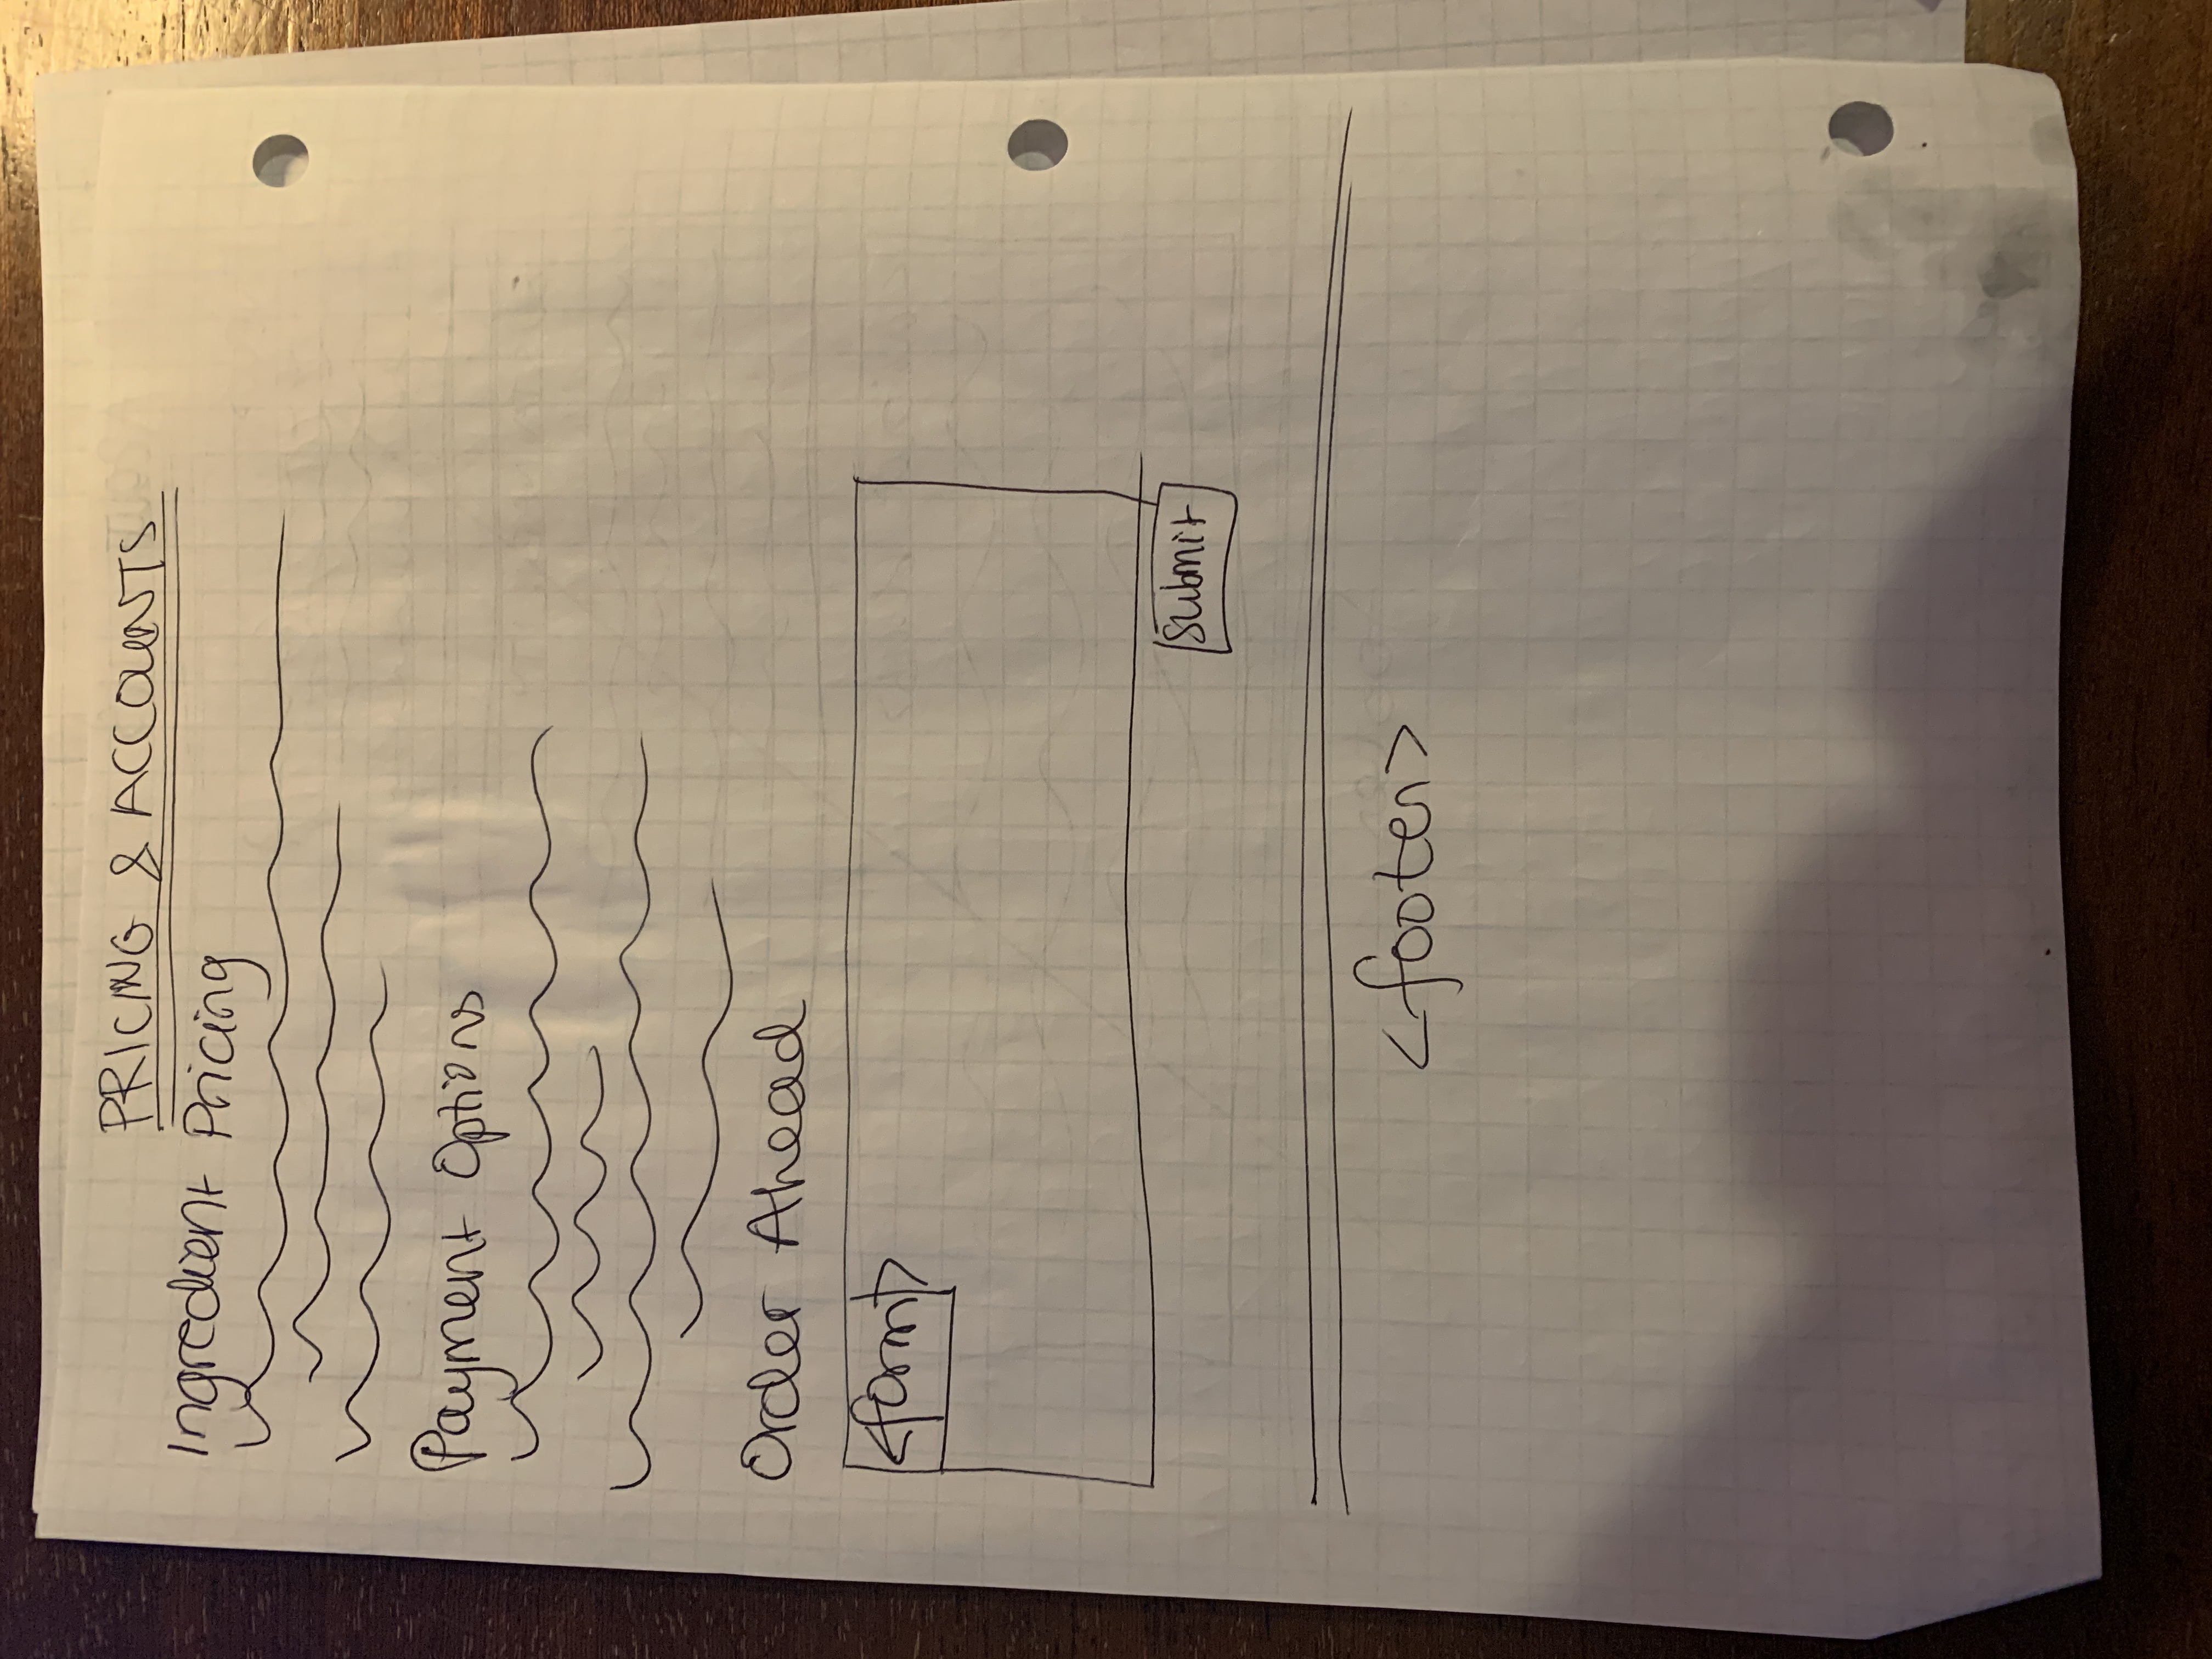 PRICING & ACCOUNTS
Ingredient Pricing
Payment Options
Order Ahead
<form>
Submit
<footer>